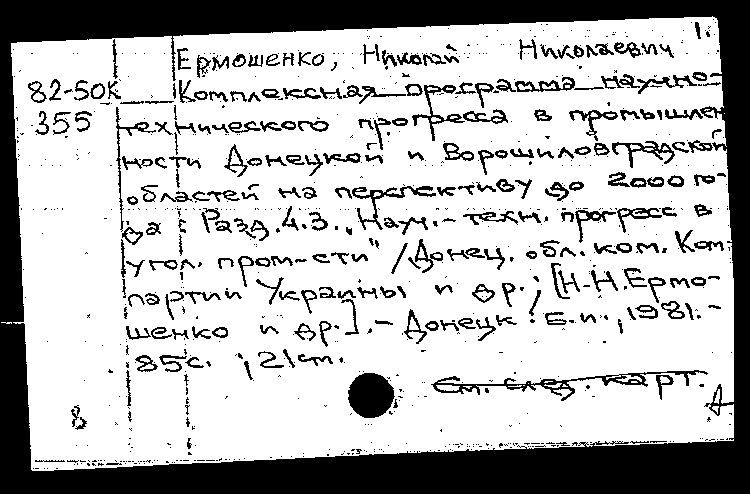 1.
Ермошенко, Николай Николаевич
82-50К Комплексная программа научно-
355 технического прогресса в промышлен
ности Донецкой и Ворошиловградской
областей на перспективу до 2000 го-
да : Разд. 4.3. „Науч.-техн. прогресс в
угол. пром-сти" / Донец. обл. ком. Ком
партии Украины и др.; [Н.Н. Ермо-
шенко и др.]. - Донецк : Б.и., 1981. -
85с. ; 21см.
См. след. карт.
8